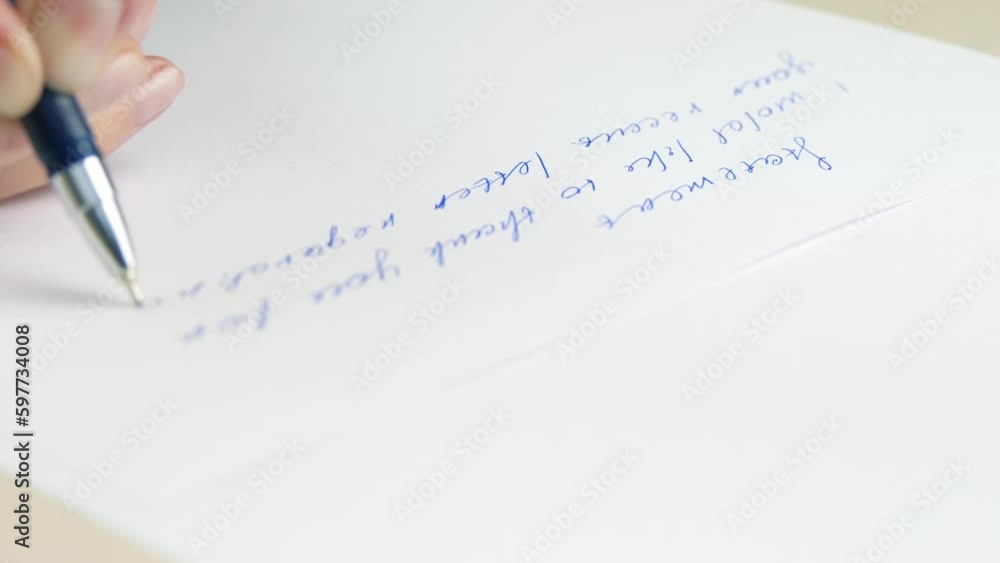 Statement
I wold like to thank you for
your recent letter regardin
Adobe Stock | #597734008